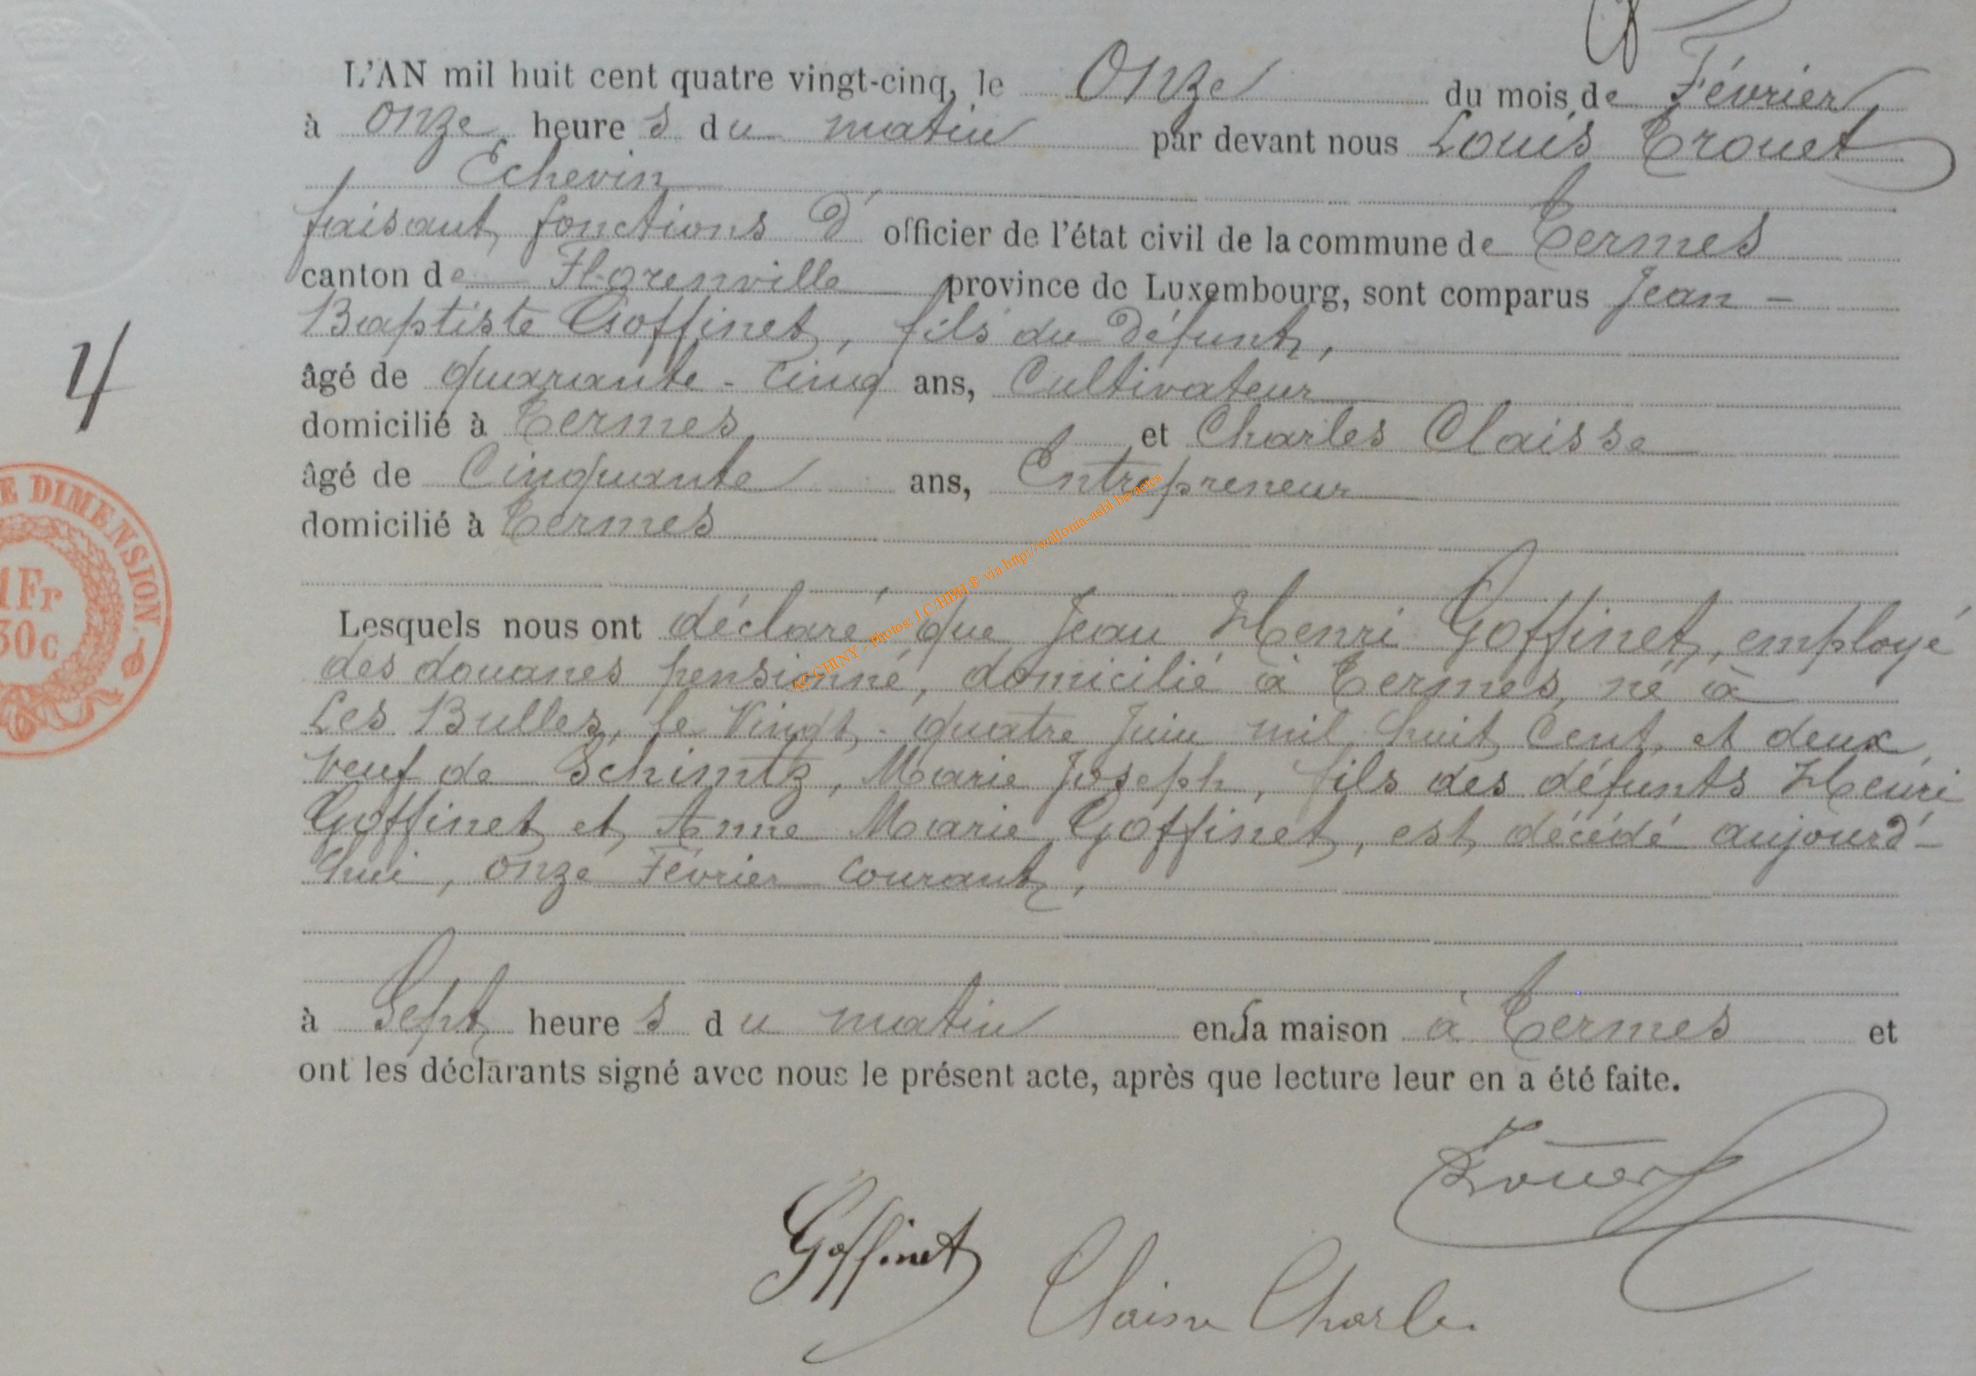 L'AN mil huit cent quatre vingt-cinq, le Onze du mois de Février
à onze heures du matin par devant nous Louis Trouet
Echevin
faisant fonctions d'officier de l'état civil de la commune de Termes
canton de Florenville province de Luxembourg, sont comparus Jean-
Baptiste Goffinet, fils du défunt,
âgé de quarante-cinq ans, Cultivateur
domicilié à Termes et Charles Claisse
âgé de Cinquante ans, Entrepreneur
domicilié à Termes
4
E DIMENSION.
1Fr
30c
Lesquels nous ont déclaré que Jean Henri Goffinet, employé
des douanes pensionné, domicilié à Termes, né à
Les Bulles, le Vingt-quatre Juin mil huit cent et deux,
veuf de Schimtz, Marie Joseph, fils des défunts Henri
Goffinet et Anne Marie Goffinet, est décédé aujourd'-
hui, onze Février courant,
à Sept heures du matin en sa maison à Termes et
ont les déclarants signé avec nous le présent acte, après que lecture leur en a été faite.
Trouet
Goffinet
Claisse Charles